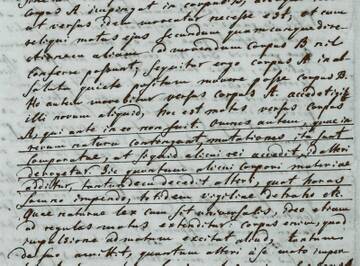 corpus A impingat in corpus B, accedat, cum
ut versus dem moveatur necesse est, at cum
reliqui motus ejus secundum quamcunque dire
ctionem alium ad movendum corpus B nil
conferre possunt, sequitur ergo corpus A in ab
soluta quiete positum movere posse corpus B.
Ho autem movebitur versus corpus A accedet, si
illi novum aliquid, hoc est motus versus corpus
A, qui ante in eo non fuit. Omnes autem quae in
rerum natura contingunt mutationes ita sunt
comparatae, ut si quid alicui rei accedit, id alteri
derogetur. Sic quantum alicui corpori materiae
additur, tantundem decedit alteri, quot horas
somno impendo, totidem vigiliae detraho etc.
Quae naturae lex cum sit universalis, ideo etiam
ad regulas motus extenditur, corpus enim, quod
impulsione ad motum excitat aliud, tantum
de suo amittit, quantum alteri a se moto imper